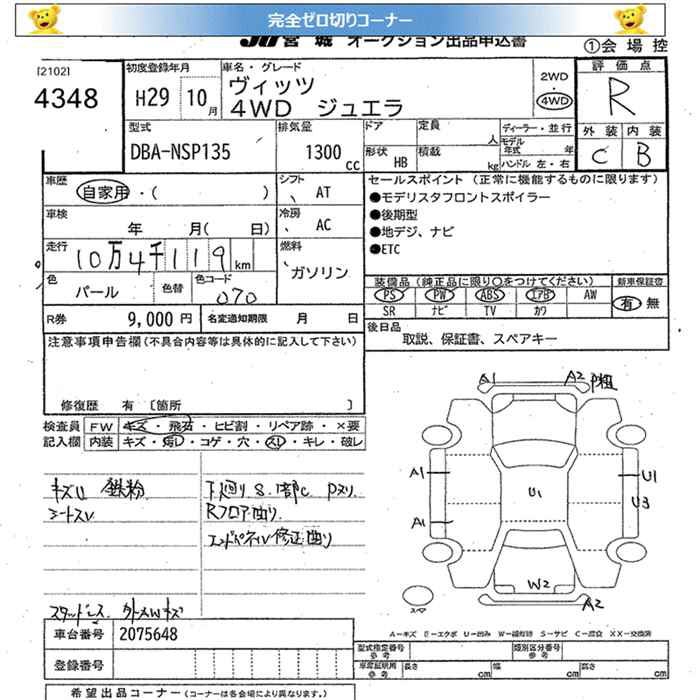 完全ゼロ切りコーナー
JU 宮城 オークション出品申込書
①会場控
[2102]
4348
初度登録年月
H29 10月
車名・グレード
ヴィッツ
4WD ジュエラ
2WD
・
4WD
評価点
R
型式
DBA-NSP135
排気量
1300 cc
ドア
定員 人
ディーラー・並行
モデル年式 年
形状 HB
積載 kg
ハンドル 左・右
外装 内装
C B
車歴
自家用・( )
シフト
AT
セールスポイント (正常に機能するものに限ります)
●モデリスタフロントスポイラー
●後期型
●地デジ、ナビ
●ETC
車検
年 月( 日)
冷房
AC
走行
10万4千119km
燃料
ガソリン
色
パール
色替
色コード
070
装備品 (純正品に限り○をつけてください)
新車保証書
PS PW ABS エアB AW
有 無
SR ナビ TV カワ
R券 9,000 円
名変通知期限 月 日
後日品
取説、保証書、スペアキー
注意事項申告欄(不具合内容等は具体的に記入して下さい)
修復歴 有 [箇所 ]
検査員記入欄
FW キズ・飛石・ヒビ割・リペア跡・×要
内装 キズ・汚レ・コゲ・穴・スリ・キレ・破レ
キズU 鉄粉
シートスレ
下廻りS.1部C Pヌリ
Rフロア曲り
エンドパネル修正曲り
スタッドレス
A1 A2 P粗
A1 U1
U1
U3
A1
W2
A2
スペア
A-キズ E-エクボ U-凹み W-補修跡 S-サビ C-腐食 XX-交換済
車台番号 2075648
登録番号
型式指定番号 参考
類別区分番号 参考
車庫証明用 参考 長さ cm 幅 cm 高さ cm
希望出品コーナー (コーナーは各会場により異なります。)